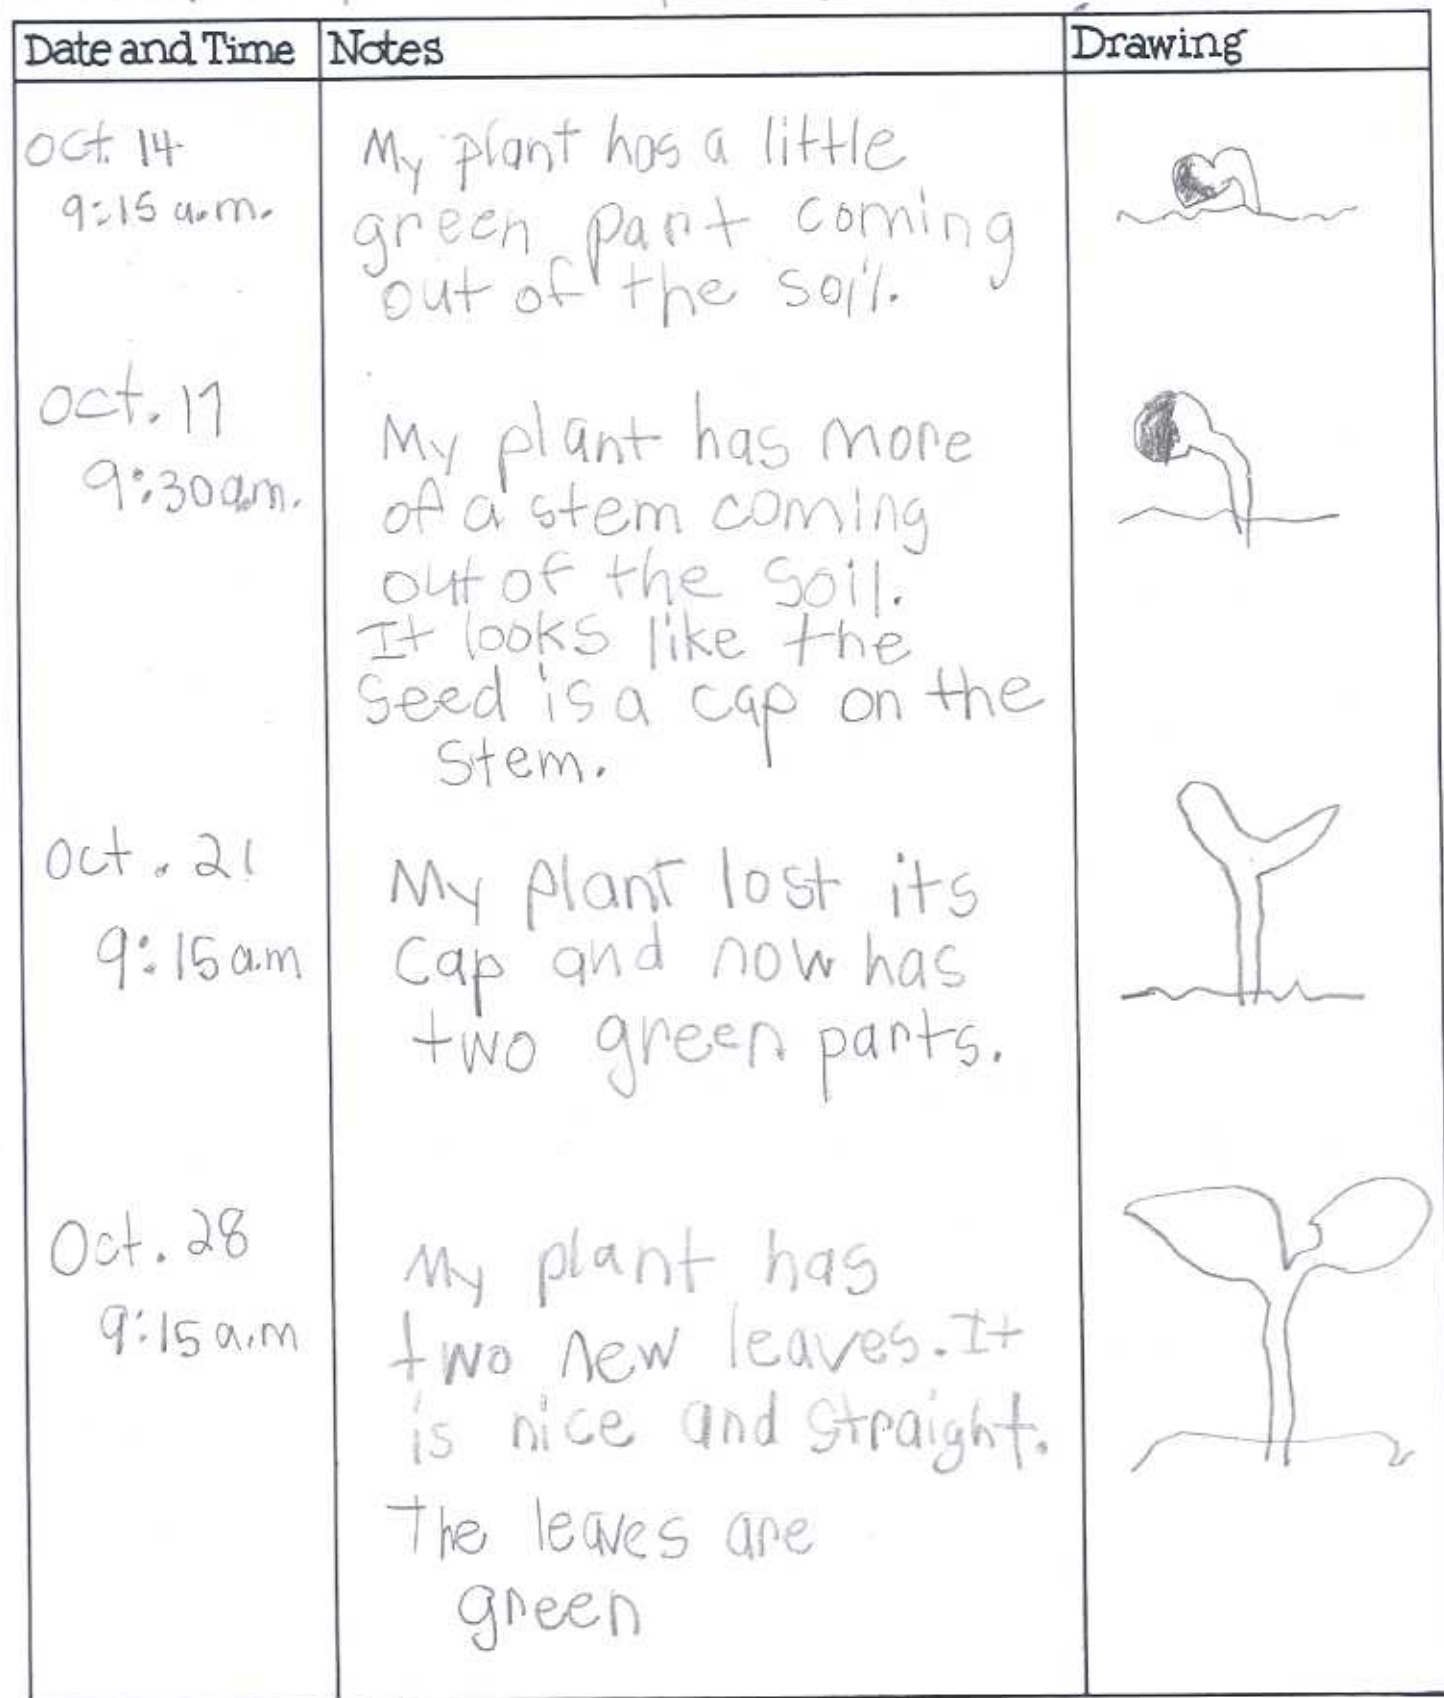 Date and Time Notes Drawing
Oct. 14
9:15 a.m.
My plant has a little
green part coming
out of the soil.
Oct. 17
9:30 a.m.
My plant has more
of a stem coming
out of the soil.
It looks like the
seed is a cap on the
stem.
Oct. 21
9:15 a.m
My plant lost its
cap and now has
two green parts.
Oct. 28
9:15 a.m
My plant has
two new leaves. It
is nice and straight.
The leaves are
green